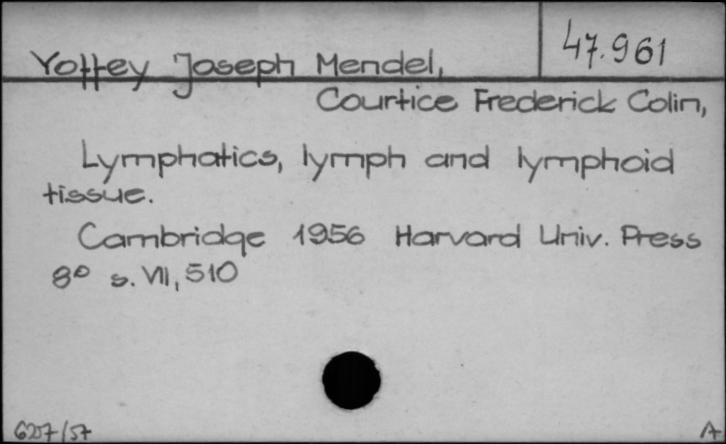 47.961
Yoffey Joseph Mendel,
Courtice Frederick Colin,
Lymphatics, lymph and lymphoid
tissue.
Cambridge 1956 Harvard Univ. Press
8° s. VII, 510
6207/57
A